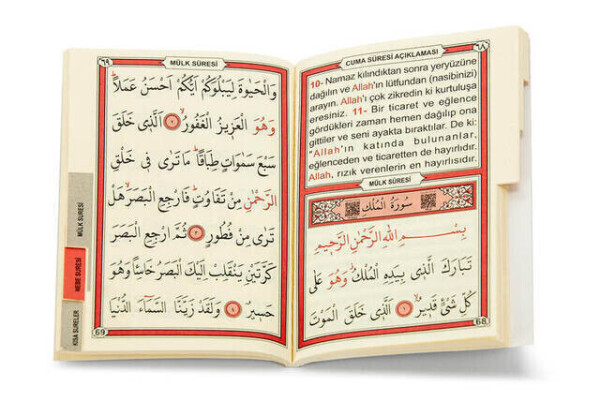 CUMA SÛRESİ AÇIKLAMASI ٦٨
10- Namaz kılındıktan sonra yeryüzüne
dağılın ve Allah'ın lütfundan (nasibinizi)
arayın. Allah'ı çok zikredin ki kurtuluşa
eresiniz. 11- Bir ticaret ve eğlence
gördükleri zaman hemen dağılıp ona
gittiler ve seni ayakta bıraktılar. De ki:
"Allah'ın katında bulunanlar,
eğlenceden ve ticaretten de hayırlıdır.
Allah, rızık verenlerin en hayırlısıdır.
MÜLK SÛRESİ
سُورَةُ الْمُلْكِ
بِسْمِ اللّٰهِ الرَّحْمٰنِ الرَّحِيمِ
تَبَارَكَ الَّذِي بِيَدِهِ الْمُلْكُ وَهُوَ عَلٰى
كُلِّ شَيْءٍ قَدِيرٌۙ ﴿١﴾ اَلَّذِي خَلَقَ الْمَوْتَ
68
٦٩ MÜLK SÛRESİ
وَالْحَيٰوةَ لِيَبْلُوَكُمْ اَيُّكُمْ اَحْسَنُ عَمَلًاۜ
وَهُوَ الْعَزِيزُ الْغَفُورُۙ ﴿٢﴾ اَلَّذِي خَلَقَ
سَبْعَ سَمٰوَاتٍ طِبَاقًاۜ مَا تَرٰى فِي خَلْقِ
الرَّحْمٰنِ مِنْ تَفَاوُتٍۜ فَارْجِعِ الْبَصَرَۙ هَلْ
تَرٰى مِنْ فُطُورٍ ﴿٣﴾ ثُمَّ ارْجِعِ الْبَصَرَ
كَرَّتَيْنِ يَنْقَلِبْ اِلَيْكَ الْبَصَرُ خَاسِئًا وَهُوَ
حَسِيرٌ ﴿٤﴾ وَلَقَدْ زَيَّنَّا السَّمَٓاءَ الدُّنْيَا
69
MÜLK SURESİ
NEBE SURESİ
KISA SURELER